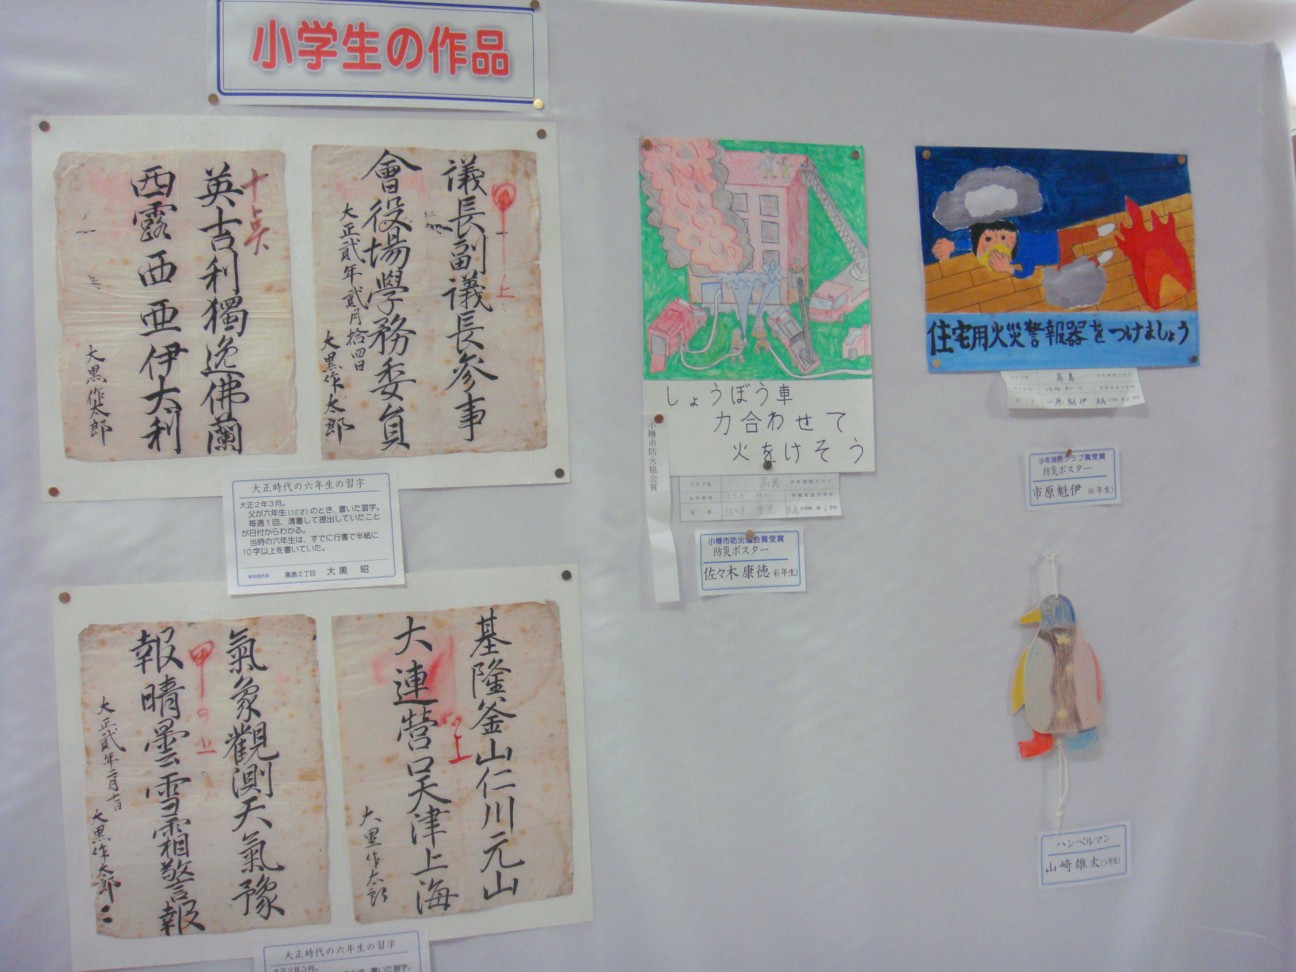 小学生の作品
十点
英吉利獨逸佛蘭
西露西亜伊太利
大黒作太郎
上
議長副議長參事
會役場學務委員
大正貳年貳月拾四日
大黒作太郎
大正時代の六年生の習字
大正2年3月。
父が六年生(12才)のとき、書いた習字。
毎週1回、清書して提出していたこと
が日付からわかる。
当時の六年生は、すでに行書で半紙に
10字以上を書いていた。
高島2丁目 大黒 昭
氣象觀測天氣豫
報晴曇雪霜警報
甲の上
大黒作太郎
基隆釜山仁川元山
大連營口天津上海
上
大黒作太郎
大正時代の六年生の習字
大正2年3月。
しょうぼう車
力合わせて
火をけそう
小樽市防火協会賞
高島
小樽市防火協会賞受賞
防災ポスター
佐々木 康徳(6年生)
住宅用火災警報器をつけましょう
高島
少年消防クラブ賞受賞
防災ポスター
市原魁伊(6年生)
ハンペルマン
山崎雄太